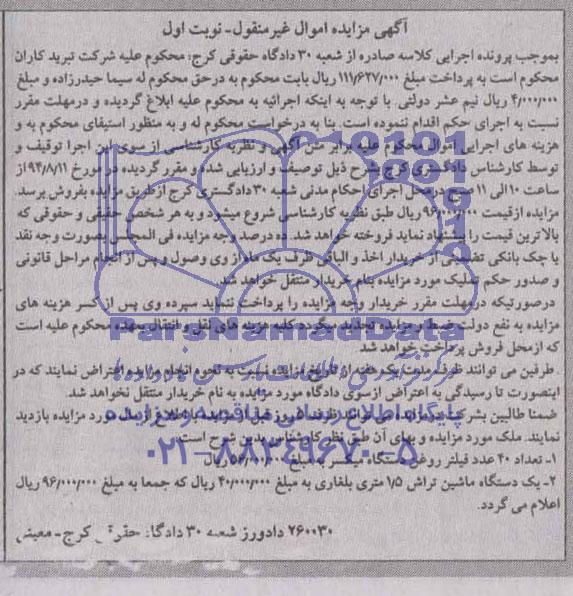 آگهی مزایده اموال غیرمنقول - نوبت اول
بموجب پرونده اجرایی کلاسه صادره از شعبه ۳۰ دادگاه حقوقی کرج: محکوم علیه شرکت تبرید کاران
محکوم است به پرداخت مبلغ ۱۱۱/۶۲۷/۰۰۰ ریال بابت محکوم به درحق محکوم له سیما حیدرزاده و مبلغ
۴/۰۰۰/۰۰۰ ریال نیم عشر دولتی. با توجه به اینکه اجرائیه به محکوم علیه ابلاغ گردیده و درمهلت مقرر
نسبت به اجرای حکم اقدام ننموده است. بنا به درخواست محکوم له و به منظور استیفای محکوم به و
هزینه های اجرایی اموال محکوم علیه برابر متن آگهی و نظریه کارشناسی از سوی این اجرا توقیف و
توسط کارشناس دادگستری کرج بشرح ذیل توصیف و ارزیابی شده و مقرر گردیده در مورخ ۹۴/۸/۱۱ از
ساعت ۱۰ الی ۱۱ صبح درمحل اجرای احکام مدنی شعبه ۳۰ دادگستری کرج ازطریق مزایده بفروش برسد.
مزایده ازقیمت ۹۶/۰۰۰/۰۰۰ ریال طبق نظریه کارشناسی شروع میشود و به هر شخص حقیقی و حقوقی که
بالاترین قیمت را پیشنهاد نماید فروخته خواهد شد. ده درصد وجه مزایده فی المجلس بصورت وجه نقد
یا چک بانکی تضمینی از خریدار اخذ و الباقی ظرف یک ماه از وی وصول و پس از انجام مراحل قانونی
و صدور حکم تملیک مورد مزایده بنام خریدار منتقل خواهد شد.
درصورتیکه درمهلت مقرر خریدار وجه مزایده را پرداخت ننماید سپرده وی پس از کسر هزینه های
مزایده به نفع دولت ضبط و مزایده تجدید میگردد کلیه هزینه های نقل و انتقال بعهده محکوم علیه است
که ازمحل فروش پرداخت خواهد شد.
طرفین می توانند ظرف مدت یک هفته از تاریخ مزایده نسبت به نحوه انجام مزایده اعتراض نمایند که در
اینصورت تا رسیدگی به اعتراض ازسوی دادگاه مورد مزایده به نام خریدار منتقل نخواهد شد.
ضمنا طالبین بشرکت درمزایده می توانند ظرف روز قبل از مزایده با اطلاع از مورد مزایده بازدید
نمایند. ملک مورد مزایده و بهای آن طبق نظر کارشناس بدین شرح است:
۱- تعداد ۴۰ عدد فیلتر روغن دستگاه میکسر به مبلغ ریال
۲- یک دستگاه ماشین تراش ۱/۵ متری بلغاری به مبلغ ۴۰/۰۰۰/۰۰۰ ریال که جمعا به مبلغ ۹۶/۰۰۰/۰۰۰ ریال
اعلام می گردد.
۲۶۰۰۳۰ دادورز شعبه ۳۰ دادگاه حقوقی کرج - معینی
ParsNamadData
مرکز فرآوری اطلاعات پارس نماد داده ها
پایگاه اطلاع رسانی مناقصه و مزایده
۰۲۱-۸۸۳۴۹۶۷۰-۵